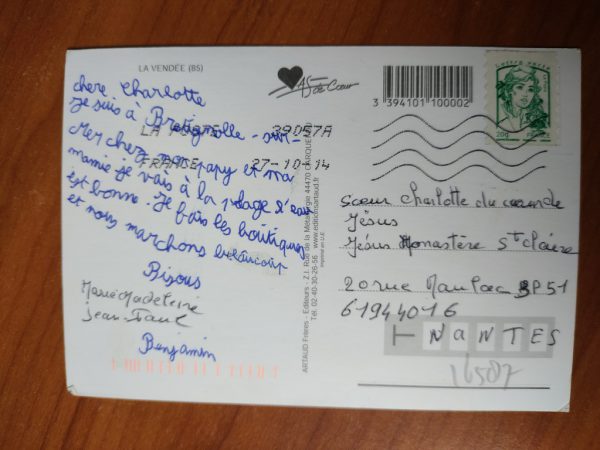 LA VENDÉE (85)
AS de Cœur
3 394101 100002
LA POSTE 39057A
FRANCE 27-10-14
chere Charlotte
je suis à Bretignolle-sur-
Mer chez mon papy et ma
mamie je vais à la plage l'eau
est bonne. Je fais les boutiques
et nous marchons beaucoup
Bisous
Marie Madeleine
jean-Paul
Benjamin
ARTAUD Frères - Editeurs - Z.I. Rue de la Métallurgie 44470 CARQUEFOU
Tél. 02-40-30-26-56 www.editionsartaud.fr
Imprimé en U.E.
20g
Sœur Charlotte du
Jésus
Jésus Monastère Ste Claire
20 rue Maulac BP51
61944016
NANTES
16587